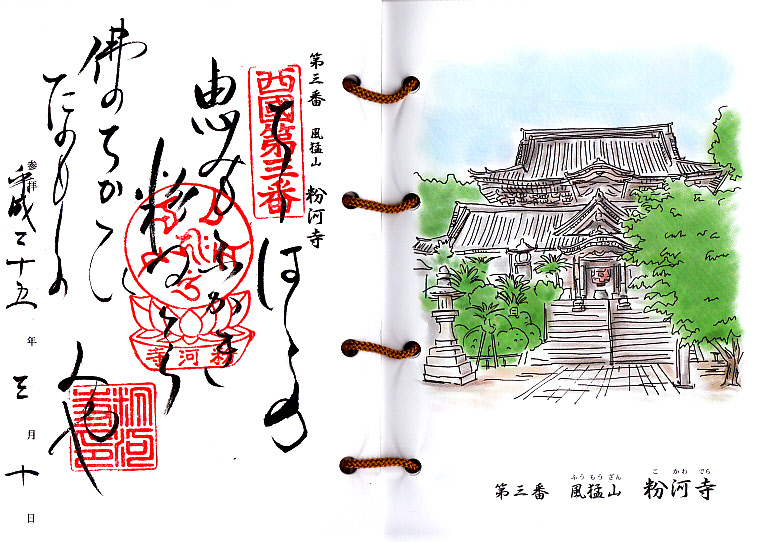 第三番 風猛山 粉河寺
西國第三番
ちゝはゝの
恵みもふかき
粉河てら
粉河寺
佛のちかひ
たのもしの
みや
粉河寺印
参拝 平成二十五年三月十日
ふうもうざん こかわでら
第三番 風猛山 粉河寺